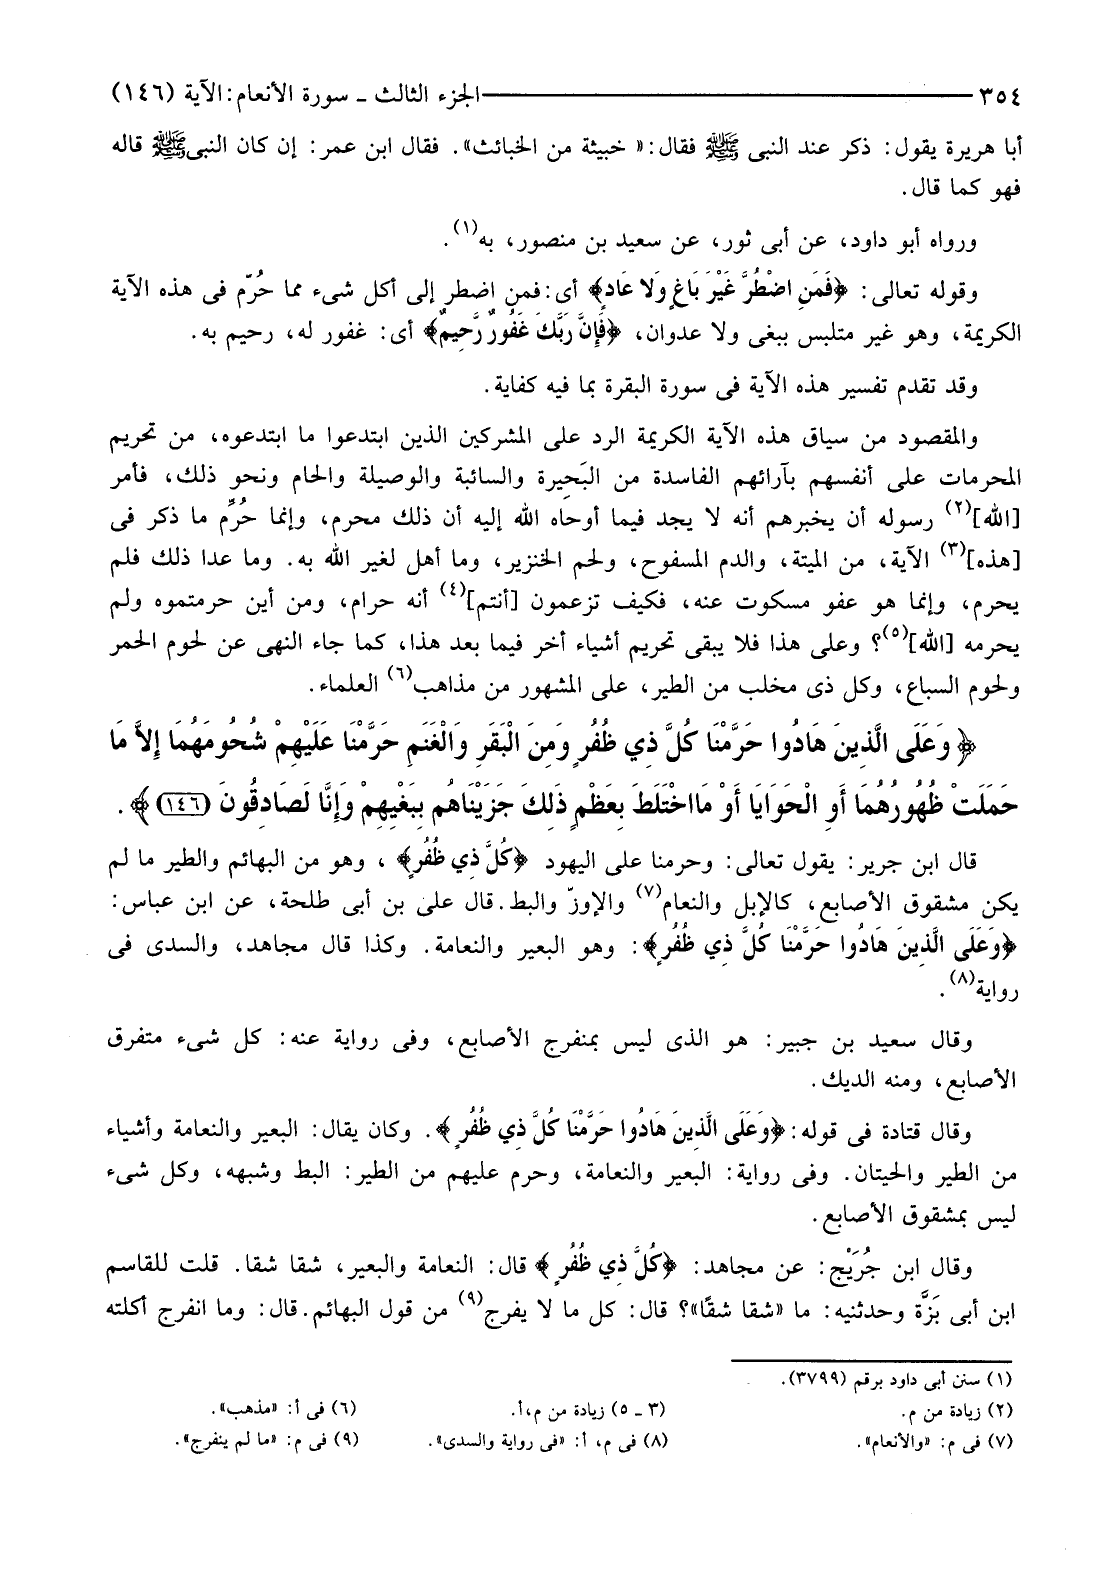 ٣٥٤ ــــــــــــــــــــــــــــــــ الجزء الثالث ـ سورة الأنعام: الآية (١٤٦)
أبا هريرة يقول: ذكر عند النبى ﷺ فقال: « خبيثة من الخبائث». فقال ابن عمر: إن كان النبى ﷺ قاله
فهو كما قال.
ورواه أبو داود، عن أبى ثور، عن سعيد بن منصور، به(١).
وقوله تعالى: ﴿فَمَنِ اضْطُرَّ غَيْرَ بَاغٍ وَلا عَادٍ﴾ أى: فمن اضطر إلى أكل شىء مما حُرّم فى هذه الآية
الكريمة، وهو غير متلبس ببغى ولا عدوان، ﴿فَإِنَّ رَبَّكَ غَفُورٌ رَّحِيمٌ﴾ أى: غفور له، رحيم به.
وقد تقدم تفسير هذه الآية فى سورة البقرة بما فيه كفاية.
والمقصود من سياق هذه الآية الكريمة الرد على المشركين الذين ابتدعوا ما ابتدعوه، من تحريم
المحرمات على أنفسهم بآرائهم الفاسدة من البَحِيرة والسائبة والوصيلة والحام ونحو ذلك، فأمر
[الله](٢) رسوله أن يخبرهم أنه لا يجد فيما أوحاه الله إليه أن ذلك محرم، وإنما حُرِّم ما ذكر فى
[هذه](٣) الآية، من الميتة، والدم المسفوح، ولحم الخنزير، وما أهل لغير الله به. وما عدا ذلك فلم
يحرم، وإنما هو عفو مسكوت عنه، فكيف تزعمون [أنتم](٤) أنه حرام، ومن أين حرمتموه ولم
يحرمه [الله](٥)؟ وعلى هذا فلا يبقى تحريم أشياء أخر فيما بعد هذا، كما جاء النهى عن لحوم الحمر
ولحوم السباع، وكل ذى مخلب من الطير، على المشهور من مذاهب(٦) العلماء.
﴿وَعَلَى الَّذِينَ هَادُوا حَرَّمْنَا كُلَّ ذِي ظُفُرٍ وَمِنَ الْبَقَرِ وَالْغَنَمِ حَرَّمْنَا عَلَيْهِمْ شُحُومَهُمَا إِلاَّ مَا
حَمَلَتْ ظُهُورُهُمَا أَوِ الْحَوَايَا أَوْ مَااخْتَلَطَ بِعَظْمٍ ذَلِكَ جَزَيْنَاهُم بِبَغْيِهِمْ وَإِنَّا لَصَادِقُونَ (١٤٦)﴾.
قال ابن جرير: يقول تعالى: وحرمنا على اليهود ﴿كُلَّ ذِي ظُفُرٍ﴾ ، وهو من البهائم والطير ما لم
يكن مشقوق الأصابع، كالإبل والنعام(٧) والإوزّ والبط. قال على بن أبى طلحة، عن ابن عباس:
﴿وَعَلَى الَّذِينَ هَادُوا حَرَّمْنَا كُلَّ ذِي ظُفُرٍ﴾: وهو البعير والنعامة. وكذا قال مجاهد، والسدى فى
رواية(٨).
وقال سعيد بن جبير: هو الذى ليس بمنفرج الأصابع، وفى رواية عنه: كل شىء متفرق
الأصابع، ومنه الديك.
وقال قتادة فى قوله: ﴿وَعَلَى الَّذِينَ هَادُوا حَرَّمْنَا كُلَّ ذِي ظُفُرٍ﴾. وكان يقال: البعير والنعامة وأشياء
من الطير والحيتان. وفى رواية: البعير والنعامة، وحرم عليهم من الطير: البط وشبهه، وكل شىء
ليس بمشقوق الأصابع.
وقال ابن جُرَيْج: عن مجاهد: ﴿كُلَّ ذِي ظُفُرٍ﴾ قال: النعامة والبعير، شقا شقا. قلت للقاسم
ابن أبى بَزَّة وحدثنيه: ما «شقا شقًا»؟ قال: كل ما لا يفرج(٩) من قول البهائم. قال: وما انفرج أكلته
(١) سنن أبى داود برقم (٣٧٩٩).
(٢) زيادة من م. (٣ ـ ٥) زيادة من م،أ. (٦) فى أ: «مذهب».
(٧) فى م: «والأنعام». (٨) فى م، أ: «فى رواية والسدى». (٩) فى م: «ما لم ينفرج».